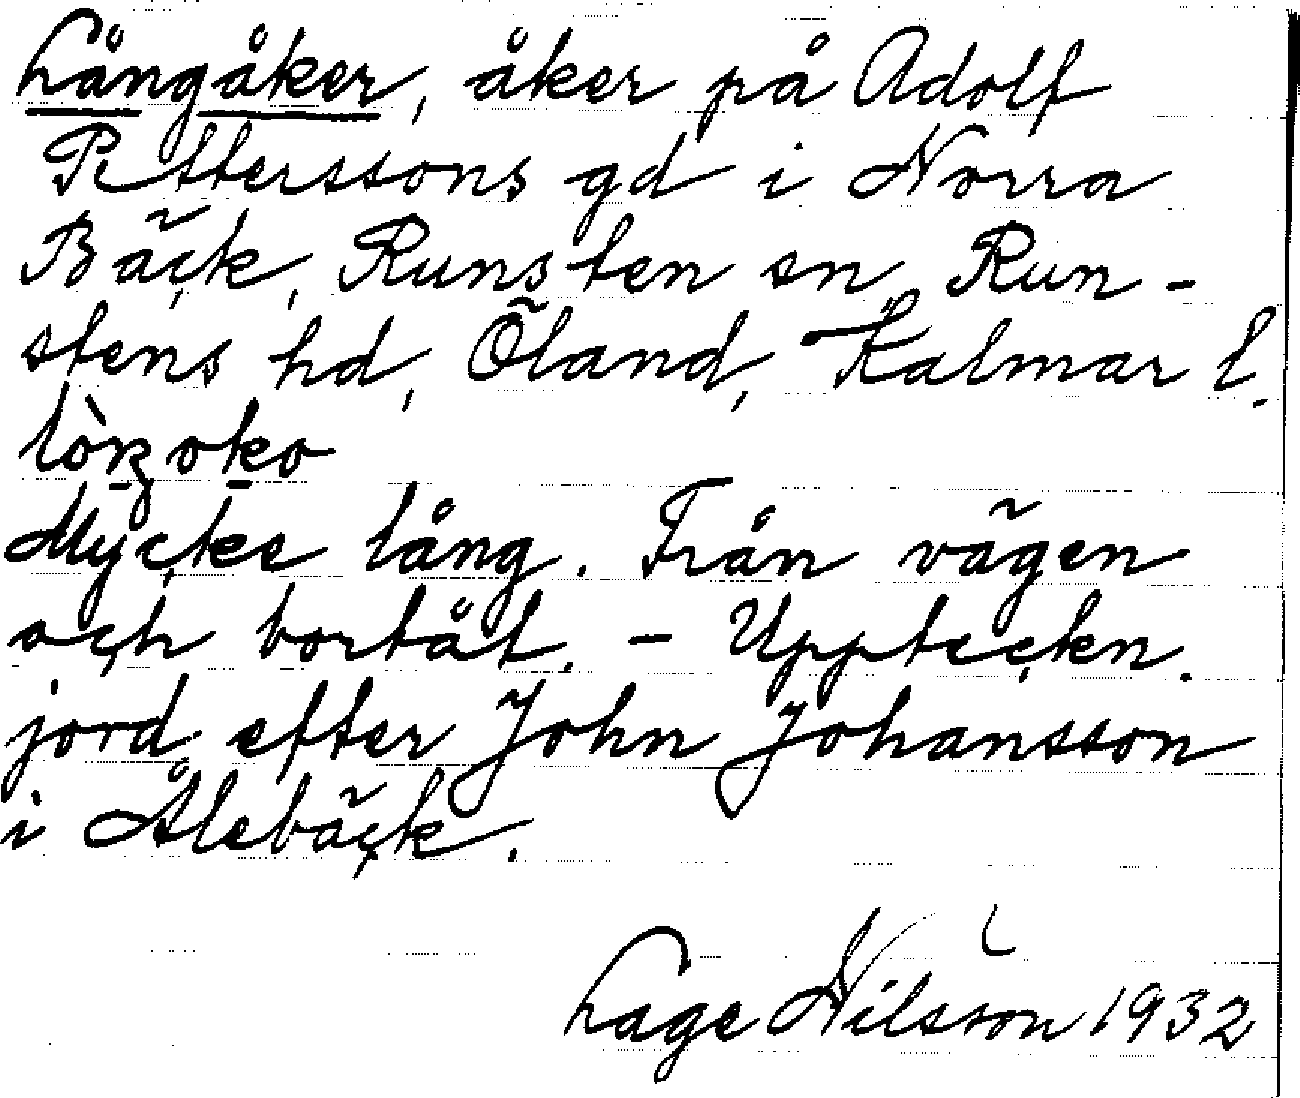 Långåker, åker på Adolf
Petterssons gd i Norra
Bäck, Runsten sn, Run-
stens hd, Öland, Kalmar l.
Mycke lång. Från vägen
och bortåt. – Uppteckn.
gjord efter John Johansson
i Ålebäck.
Lage Nilsson 1932